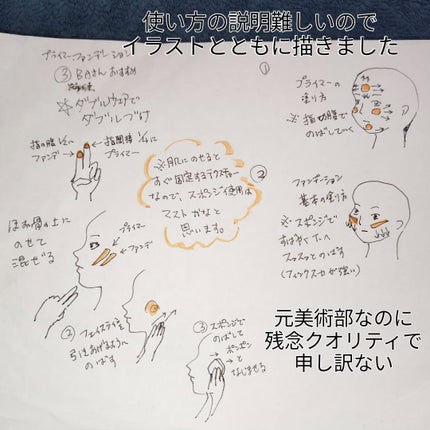 使い方の説明難しいので
イラストとともに描きました
プライマー、ファンデーション
③ BAさんおすすめ
※ダブルウェアで
ダブルづけ
指の腹1/2に
ファンデ
指関節1/2に
プライマー
①
プライマーの
塗り方
※指切腹で
のばしていく
②
※肌にのせると
すぐ固定するテクスチャー
なので、スポンジ使用は
マストかなと
思います。
ファンデーション
基本の塗り方
※スポンジで
すばやく下へ
スッスッとのばす
(フィックス力が強い)
ほお骨の上に
のせて
混ぜる
プライマー
ファンデ
② フェイスラインを
引きあげるように
のばす
③ スポンジで
のばして
ポンポン
となじませる
元美術部なのに
残念クオリティで
申し訳ない